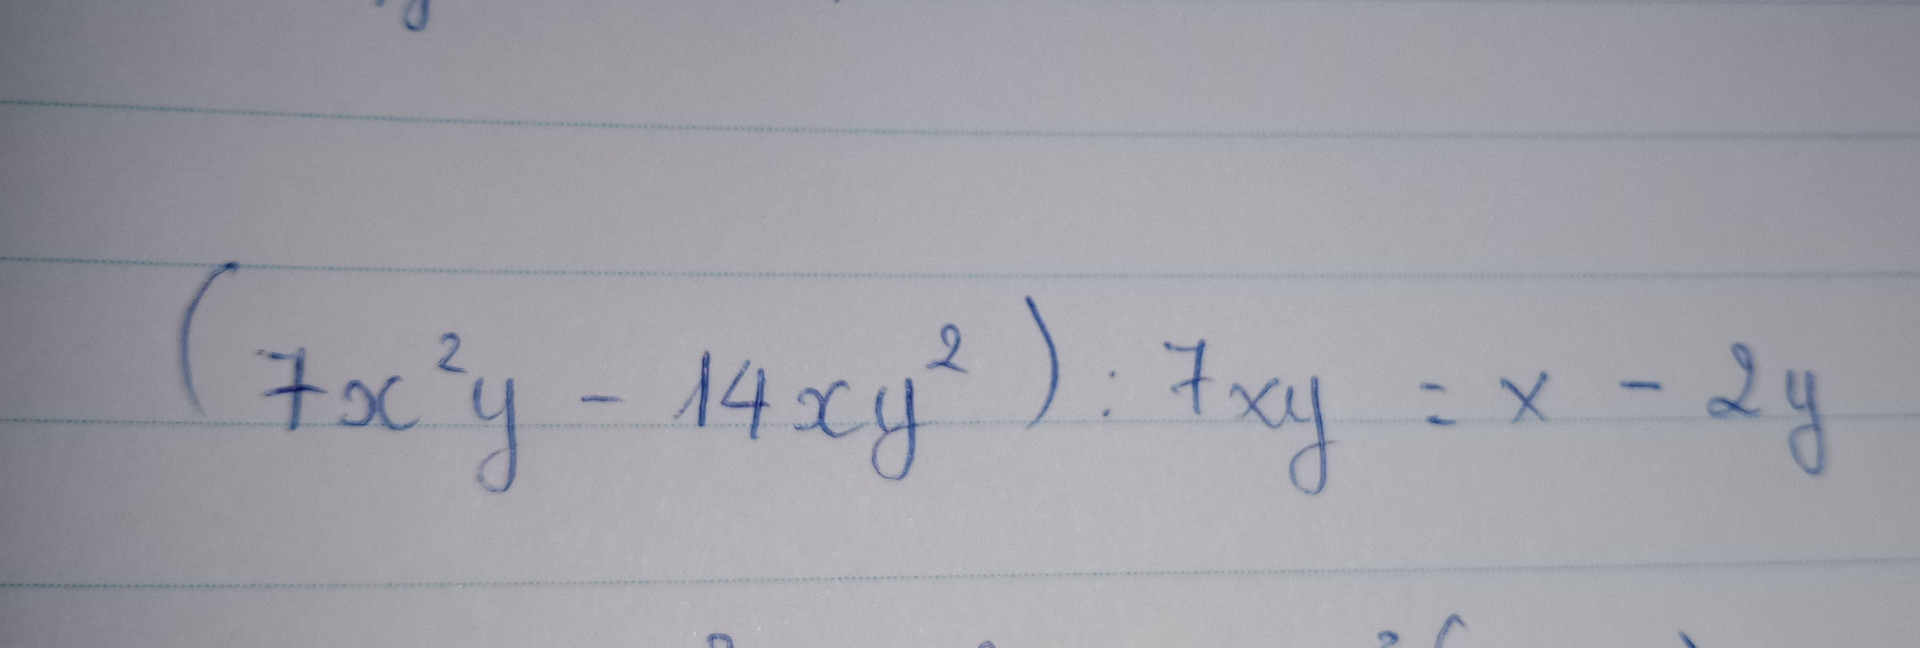 (7x²y - 14xy²) : 7xy = x - 2y